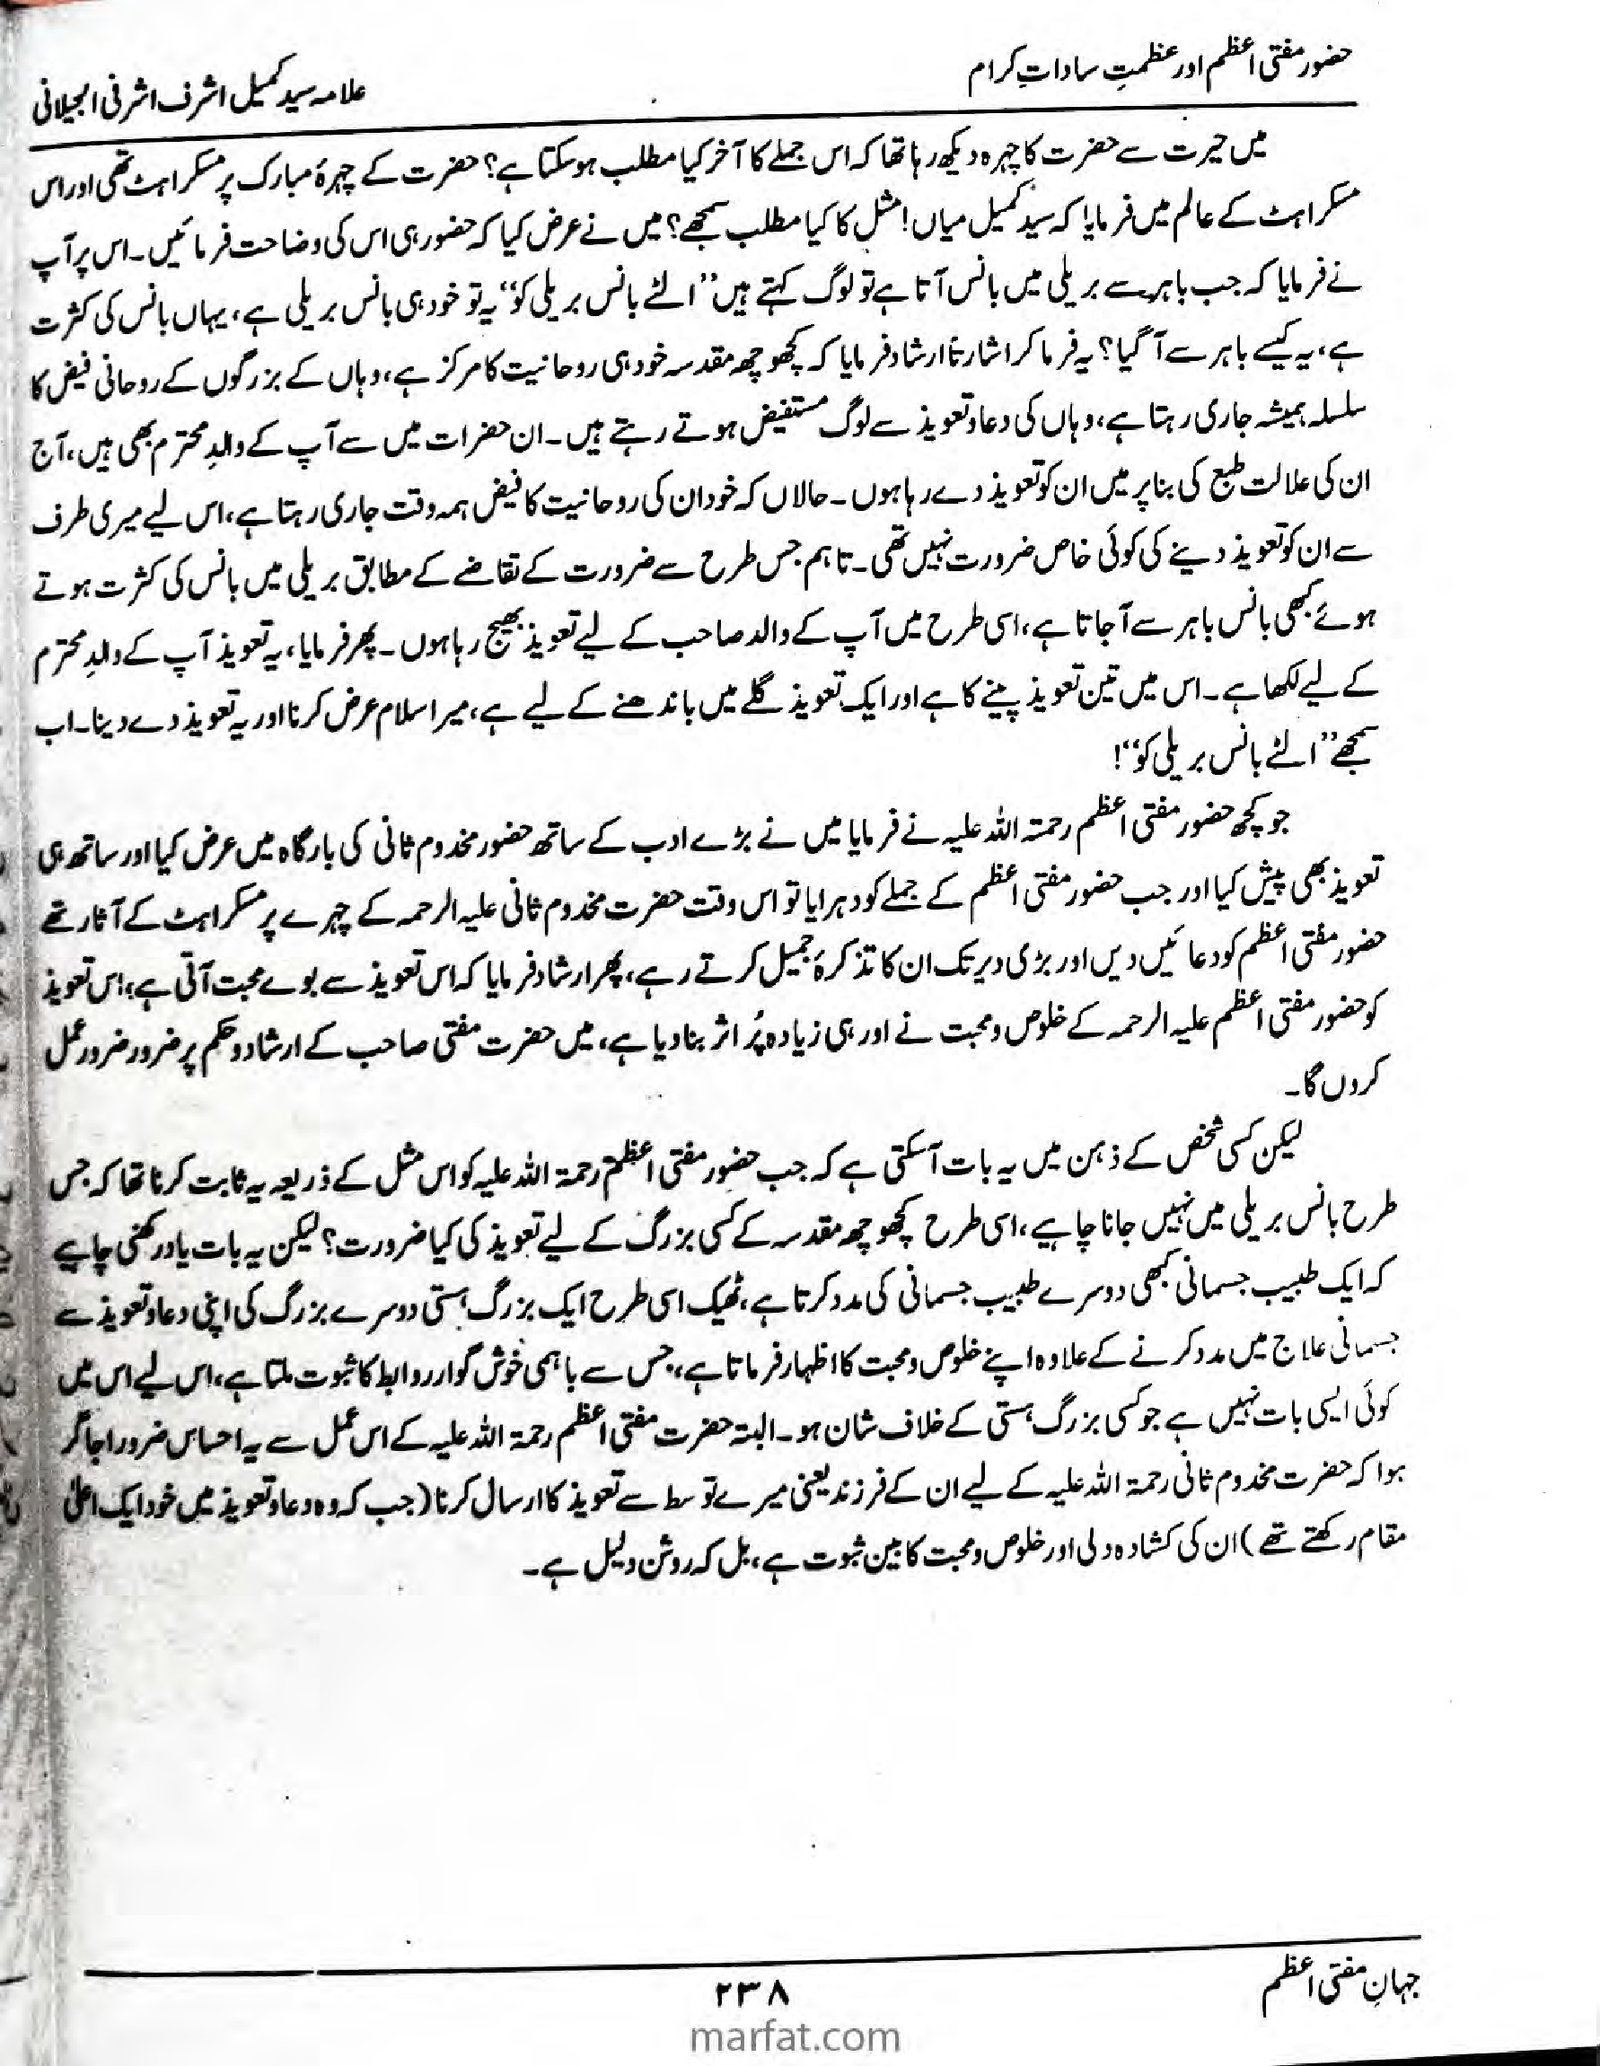 حضور مفتی اعظم اور عظمتِ ساداتِ کرام
علامہ سید کمیل اشرف اشرفی الجیلانی
میں حیرت سے حضرت کا چہرہ دیکھ رہا تھا کہ اس جملے کا آخر کیا مطلب ہو سکتا ہے؟ حضرت کے چہرۂ مبارک پر مسکراہٹ تھی اور اس
مسکراہٹ کے عالم میں فرمایا کہ سید کمیل میاں! مثل کا کیا مطلب سمجھے؟ میں نے عرض کیا کہ حضور ہی اس کی وضاحت فرمائیں۔ اس پر آپ
نے فرمایا کہ جب باہر سے بریلی میں بانس آتا ہے تو لوگ کہتے ہیں ”الٹے بانس بریلی کو“ یہ تو خود ہی بانس بریلی ہے، یہاں بانس کی کثرت
ہے، یہ کیسے باہر سے آگیا؟ یہ فرما کر اشارتاً ارشاد فرمایا کہ کچھوچھہ مقدسہ خود ہی روحانیت کا مرکز ہے، وہاں کے بزرگوں کے روحانی فیض کا
سلسلہ ہمیشہ جاری رہتا ہے، وہاں کی دعا و تعویذ سے لوگ مستفیض ہوتے رہتے ہیں۔ ان حضرات میں سے آپ کے والدِ محترم بھی ہیں، آج
ان کی علالت طبع کی بنا پر میں ان کو تعویذ دے رہا ہوں۔ حالاں کہ خود ان کی روحانیت کا فیض ہمہ وقت جاری رہتا ہے، اس لیے میری طرف
سے ان کو تعویذ دینے کی کوئی خاص ضرورت نہیں تھی۔ تاہم جس طرح سے ضرورت کے تقاضے کے مطابق بریلی میں بانس کی کثرت ہوتے
ہوئے کبھی بانس باہر سے آجاتا ہے، اسی طرح میں آپ کے والد صاحب کے لیے تعویذ بھیج رہا ہوں۔ پھر فرمایا، یہ تعویذ آپ کے والدِ محترم
کے لیے لکھا ہے۔ اس میں تین تعویذ پینے کا ہے اور ایک تعویذ گلے میں باندھنے کے لیے ہے، میرا سلام عرض کرنا اور یہ تعویذ دے دینا۔ اب
سمجھے ”الٹے بانس بریلی کو“!
جو کچھ حضور مفتی اعظم رحمۃ اللہ علیہ نے فرمایا میں نے بڑے ادب کے ساتھ حضور مخدوم ثانی کی بارگاہ میں عرض کیا اور ساتھ ہی
تعویذ بھی پیش کیا اور جب حضور مفتی اعظم کے جملے کو دہرایا تو اس وقت حضرت مخدوم ثانی علیہ الرحمہ کے چہرے پر مسکراہٹ کے آثار تھے
حضور مفتی اعظم کو دعائیں دیں اور بڑی دیر تک ان کا تذکرۂ جمیل کرتے رہے، پھر ارشاد فرمایا کہ اس تعویذ سے بوے محبت آتی ہے، اس تعویذ
کو حضور مفتی اعظم علیہ الرحمہ کے خلوص و محبت نے اور ہی زیادہ پُر اثر بنا دیا ہے، میں حضرت مفتی صاحب کے ارشاد و حکم پر ضرور ضرور عمل
کروں گا۔
لیکن کسی شخص کے ذہن میں یہ بات آسکتی ہے کہ جب حضور مفتی اعظم رحمۃ اللہ علیہ کو اس مثل کے ذریعہ یہ ثابت کرنا تھا کہ جس
طرح بانس بریلی میں نہیں جانا چاہیے، اسی طرح کچھوچھہ مقدسہ کے کسی بزرگ کے لیے تعویذ کی کیا ضرورت؟ لیکن یہ بات یاد رکھنی چاہیے
کہ ایک طبیب جسمانی کبھی دوسرے طبیب جسمانی کی مدد کرتا ہے، ٹھیک اسی طرح ایک بزرگ ہستی دوسرے بزرگ کی اپنی دعا و تعویذ سے
جسمانی علاج میں مدد کرنے کے علاوہ اپنے خلوص و محبت کا اظہار فرماتا ہے، جس سے باہمی خوش گوار روابط کا ثبوت ملتا ہے، اس لیے اس میں
کوئی ایسی بات نہیں ہے جو کسی بزرگ ہستی کے خلاف شان ہو۔ البتہ حضرت مفتی اعظم رحمۃ اللہ علیہ کے اس عمل سے یہ احساس ضرور اجاگر
ہوا کہ حضرت مخدوم ثانی رحمۃ اللہ علیہ کے لیے ان کے فرزند یعنی میرے توسط سے تعویذ کا ارسال کرنا (جب کہ وہ دعا و تعویذ میں خود ایک اعلیٰ
مقام رکھتے تھے) ان کی کشادہ دلی اور خلوص و محبت کا بین ثبوت ہے، بل کہ روشن دلیل ہے۔
جہانِ مفتی اعظم
۲۳۸
marfat.com